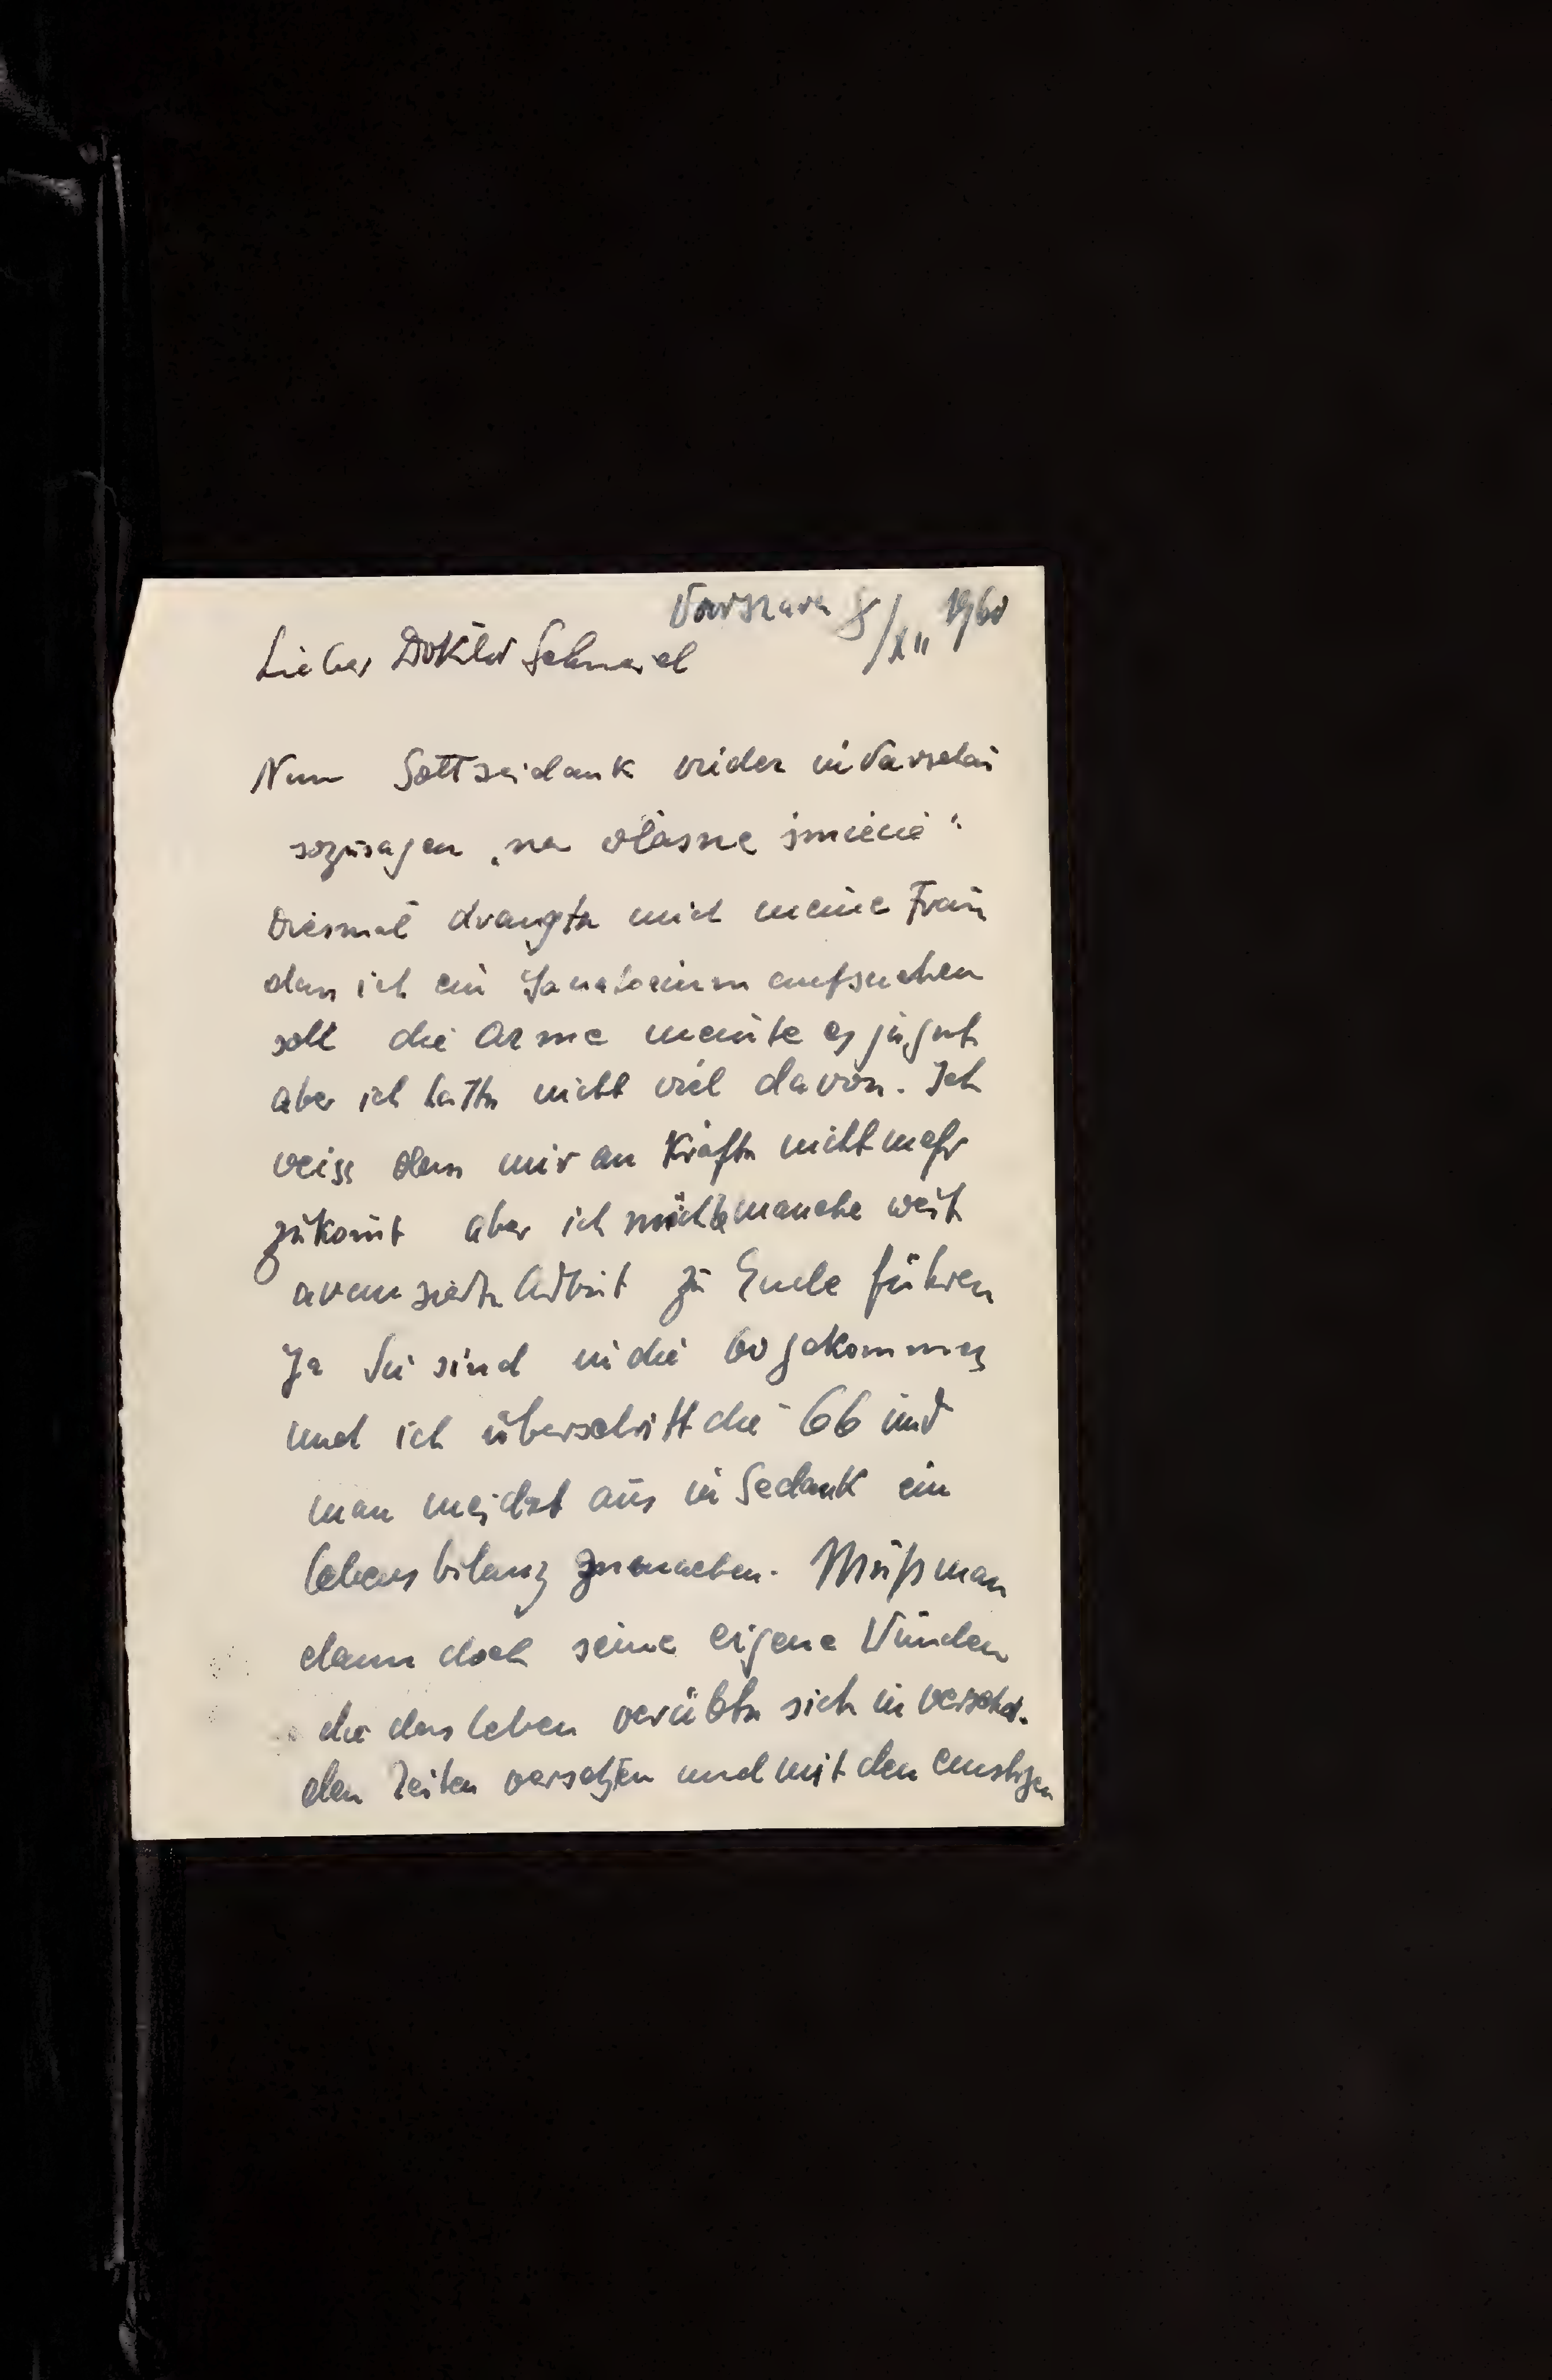 Warszawa 8/XII 1960
Lieber Doktor Schneid
Nun Gottseidank wider in Varschau
sozusagen „na własne śmiecie"
Diesmal drangte mich meine Frau
dass ich ein Sanatorium aufsuchen
soll die Arme meinte es ja gut
aber ich hatte nicht viel davon. Ich
veiss dass mir an Kräfte nicht mehr
zukomt aber ich möchte manche weit
avansierte Arbeit zu Ende führen
Ja Sie sind in die 60 gekommen
und ich überschritt die 66 und
man in Gedank ein
lebensbilanz zu machen. Muß man
dann doch seine eigene Vunden
die das leben verübte sich in
den Zeiten versetzen und mit den einstigen